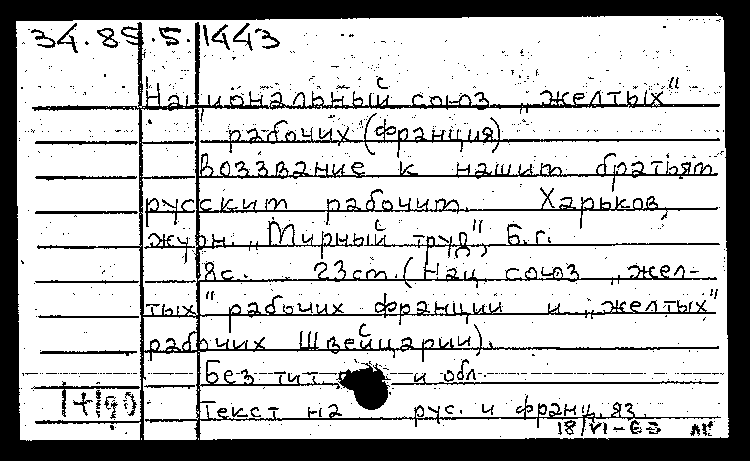 34.85.5.1443
Национальный союз „желтых"
рабочих (франция)
Воззвание к нашим братьям
русским рабочим. Харьков,
журн. „Мирный труд", Б.г.
8с. 23см. (Нац союз „жел-
тых" рабочих франции и „желтых"
рабочих Швейцарии).
Без тит. и обл.
Текст на рус. и франц. яз.
18/VI-63